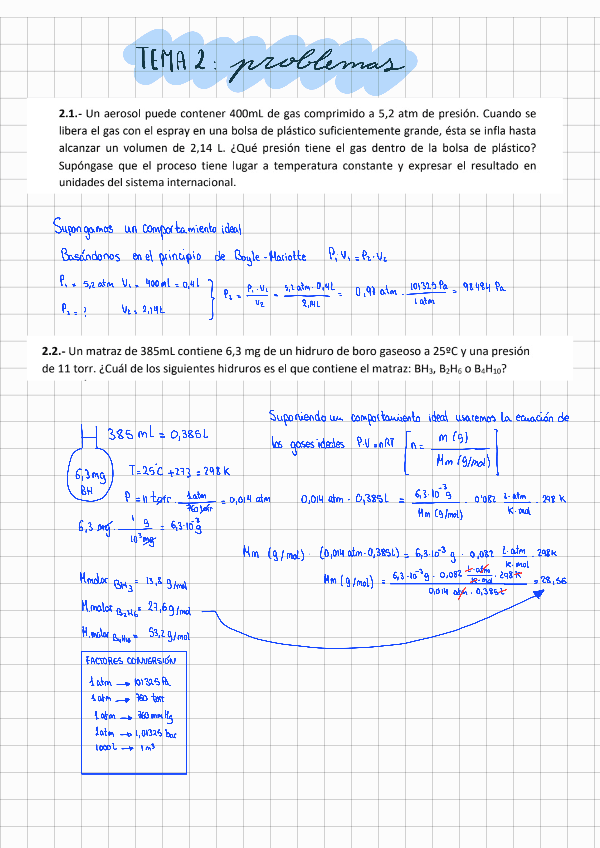 TEMA 2: problemas
2.1.- Un aerosol puede contener 400mL de gas comprimido a 5,2 atm de presión. Cuando se
libera el gas con el espray en una bolsa de plástico suficientemente grande, ésta se infla hasta
alcanzar un volumen de 2,14 L. ¿Qué presión tiene el gas dentro de la bolsa de plástico?
Supóngase que el proceso tiene lugar a temperatura constante y expresar el resultado en
unidades del sistema internacional.
Supongamos un comportamiento ideal
Basándonos en el principio de Boyle-Mariotte P₁V₁ = P₂·V₂
P₁ = 5,2 atm V₁ = 400 ml = 0,4L
P₂ = ? V₂ = 2,14L
P₂ = P₁·V₁ / V₂ = 5,2 atm · 0,4L / 2,14L = 0,98 atm · 101325 Pa / 1 atm = 98484 Pa
2.2.- Un matraz de 385mL contiene 6,3 mg de un hidruro de boro gaseoso a 25ºC y una presión
de 11 torr. ¿Cuál de los siguientes hidruros es el que contiene el matraz: BH₃, B₂H₆ o B₄H₁₀?
Suponiendo un comportamiento ideal usaremos la ecuación de
los gases ideales P·V = nRT [n = m (g) / Mm (g/mol)]
385 mL = 0,385L
6,3mg
BH
T = 25°C + 273 = 298 K
P = 11 torr · 1 atm / 760 torr = 0,014 atm
6,3 mg · 1 g / 10³ mg = 6,3·10⁻³ g
0,014 atm · 0,385L = 6,3·10⁻³ g / Mm (g/mol) · 0'082 L·atm / K·mol · 298 K
Mm (g/mol) · (0,014 atm · 0,385L) = 6,3·10⁻³ g · 0,082 L·atm / K·mol · 298K
Mm (g/mol) = 6,3·10⁻³ g · 0,082 L·atm / K·mol · 298K / 0,014 atm · 0,385L = 28,56
M.molar BH₃ = 13,8 g/mol
M.molar B₂H₆ = 27,6 g/mol
M.molar B₄H₁₀ = 53,2 g/mol
FACTORES CONVERSIÓN
1 atm → 101325 Pa
1 atm → 760 torr
1 atm → 760 mm Hg
1 atm → 1,01325 bar
1000 L → 1 m³